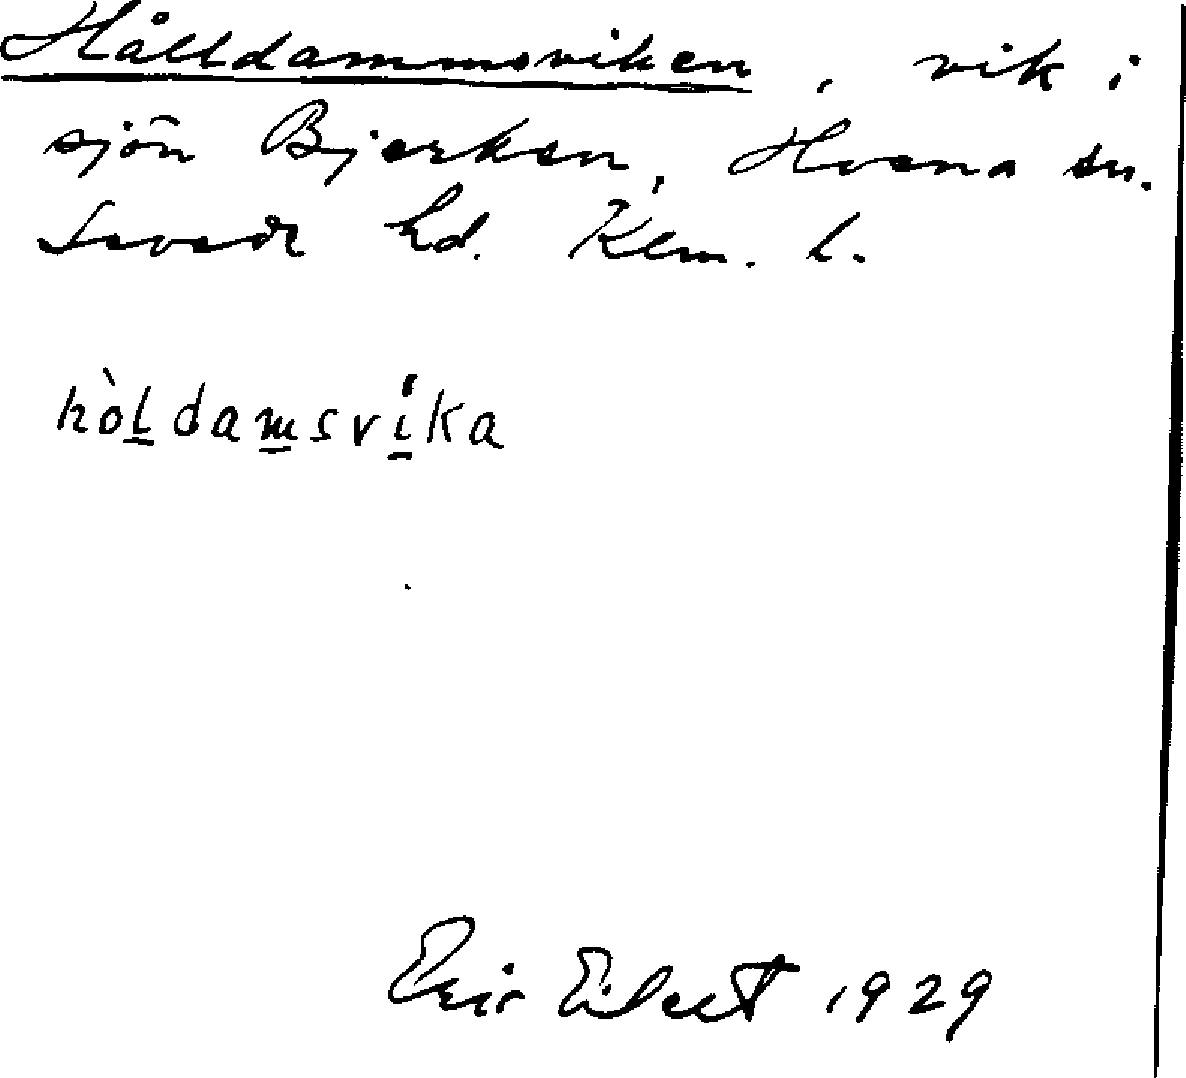 Hålldammsviken, vik i
sjön Bjerken, Hvena sn.
Sevede hd. Klm. l.
hòl̲dam̲sví̲ka
Eric Elvert 1929